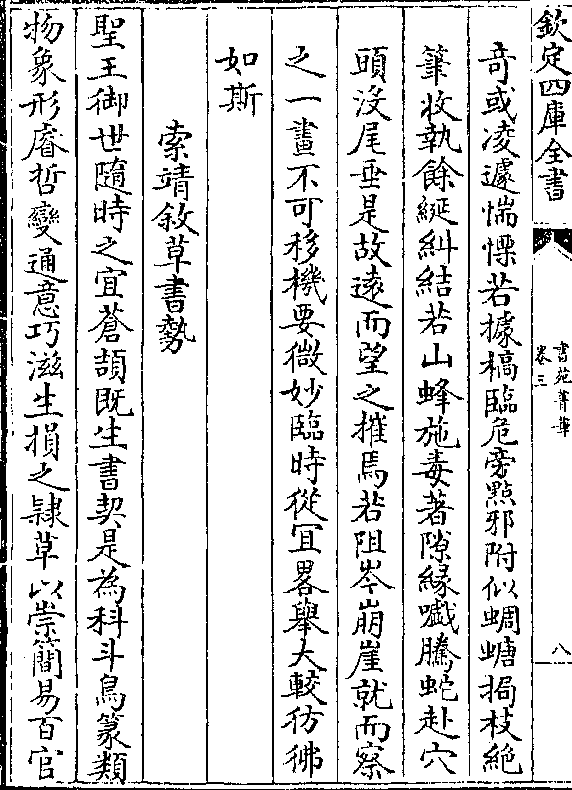 欽定四庫全書
書苑菁華
卷三
八
竒或凌遽惴慄若據槁臨危旁㸃邪附似蜩螗挶枝絶
筆收執餘綖糾結若山蜂施毒著隙緣巇騰蛇赴穴
頭沒尾垂是故遠而望之摧焉若阻岑崩崖就而察
之一畫不可移機要微妙臨時從宜畧舉大較彷彿
如斯
索靖敘草書勢
聖王御世隨時之宜蒼頡既生書契是為科斗鳥篆類
物象形睿哲變通意巧滋生損之隷草以崇簡易百官